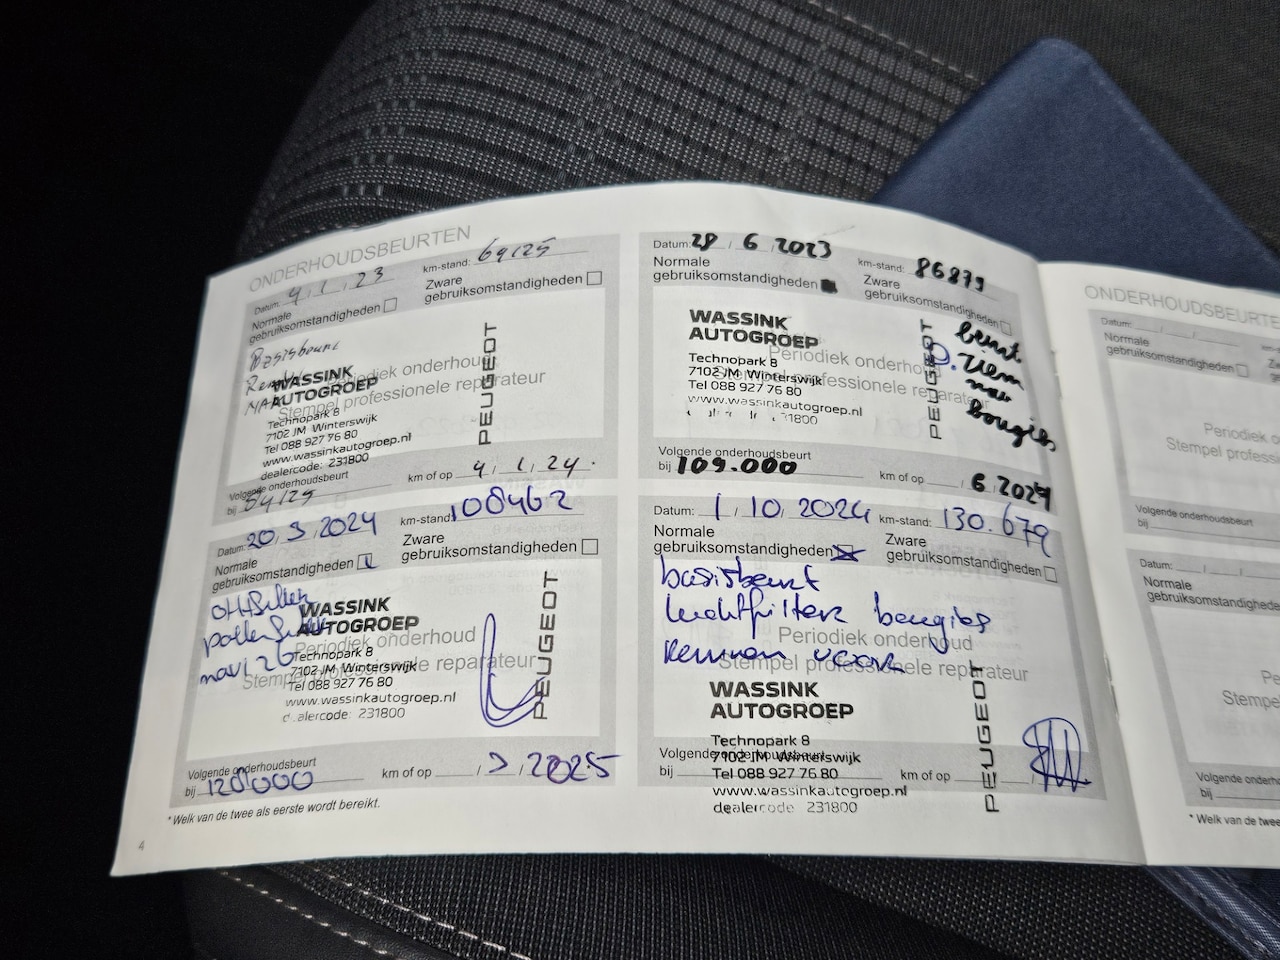 ONDERHOUDSBEURTEN
Datum: 4 / 1 / 23 km-stand: 69125
Normale gebruiksomstandigheden
Zware gebruiksomstandigheden
Basisbeurt
WASSINK
AUTOGROEP
Periodiek onderhoud
Stempel professionele reparateur
Technopark 8
7102 JM Winterswijk
Tel 088 927 76 80
www.wassinkautogroep.nl
dealercode: 231800
PEUGEOT
Volgende onderhoudsbeurt
bij km of op 4 / 1 / 24.
Datum: 28 / 6 / 2023 km-stand: 86879
Normale gebruiksomstandigheden
Zware gebruiksomstandigheden
WASSINK
AUTOGROEP
Periodiek onderhoud
Stempel professionele reparateur
Technopark 8
7102 JM Winterswijk
Tel 088 927 76 80
www.wassinkautogroep.nl
231800
PEUGEOT
beurt
D. riem
nav
bougies
Volgende onderhoudsbeurt
bij 109.000 km of op / 6 / 2024
Datum: 20 / 3 / 2024 km-stand: 108462
Normale gebruiksomstandigheden
Zware gebruiksomstandigheden
pollenfilter
WASSINK
AUTOGROEP
Periodiek onderhoud
Stempel professionele reparateur
Technopark 8
7102 JM Winterswijk
Tel 088 927 76 80
www.wassinkautogroep.nl
dealercode: 231800
PEUGEOT
Volgende onderhoudsbeurt
bij 128.000 km of op / 3 / 2025
Datum: 1 / 10 / 2024 km-stand: 130.679
Normale gebruiksomstandigheden
Zware gebruiksomstandigheden
basisbeurt
luchtfilter bougies
remmen voor
Periodiek onderhoud
Stempel professionele reparateur
WASSINK
AUTOGROEP
Technopark 8
7102 JM Winterswijk
Tel 088 927 76 80
www.wassinkautogroep.nl
dealercode 231800
PEUGEOT
Volgende onderhoudsbeurt
bij km of op
* Welk van de twee als eerste wordt bereikt.
4
ONDERHOUDSBEURTE
Datum:
Normale
gebruiksomstandigheden
Periodiek o
Stempel professi
Volgende onderhoudsbeurt
bij
Datum:
Normale
gebruiksomstandighede
Pe
Stempel
Volgende onderhouds
bij
* Welk van de twee